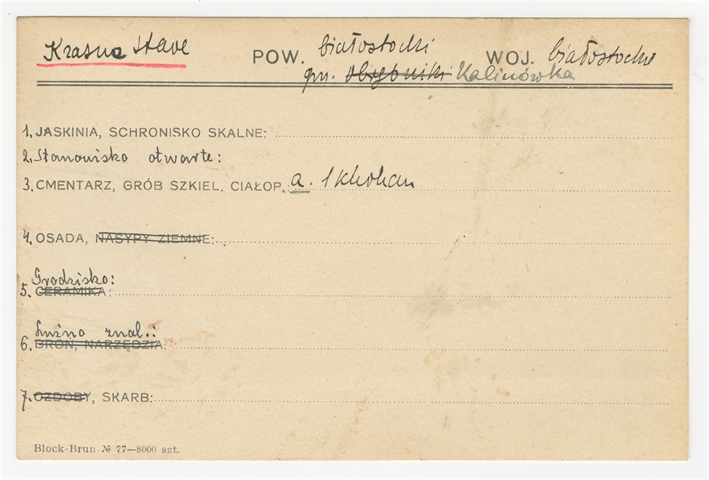 Krasne Stare POW. białostocki WOJ. białostockie
gm. Obrębniki Kalinówka
1. JASKINIA, SCHRONISKO SKALNE:
2. Stanowisko otwarte:
3. CMENTARZ, GRÓB SZKIEL. CIAŁOP. a.
4. OSADA, NASYPY ZIEMNE:
Grodzisko:
5. CERAMIKA:
Luźno znal.:
6. BROŃ, NARZĘDZIA:
7. OZDOBY, SKARB:
Block-Brun. № 77—8000 szt.